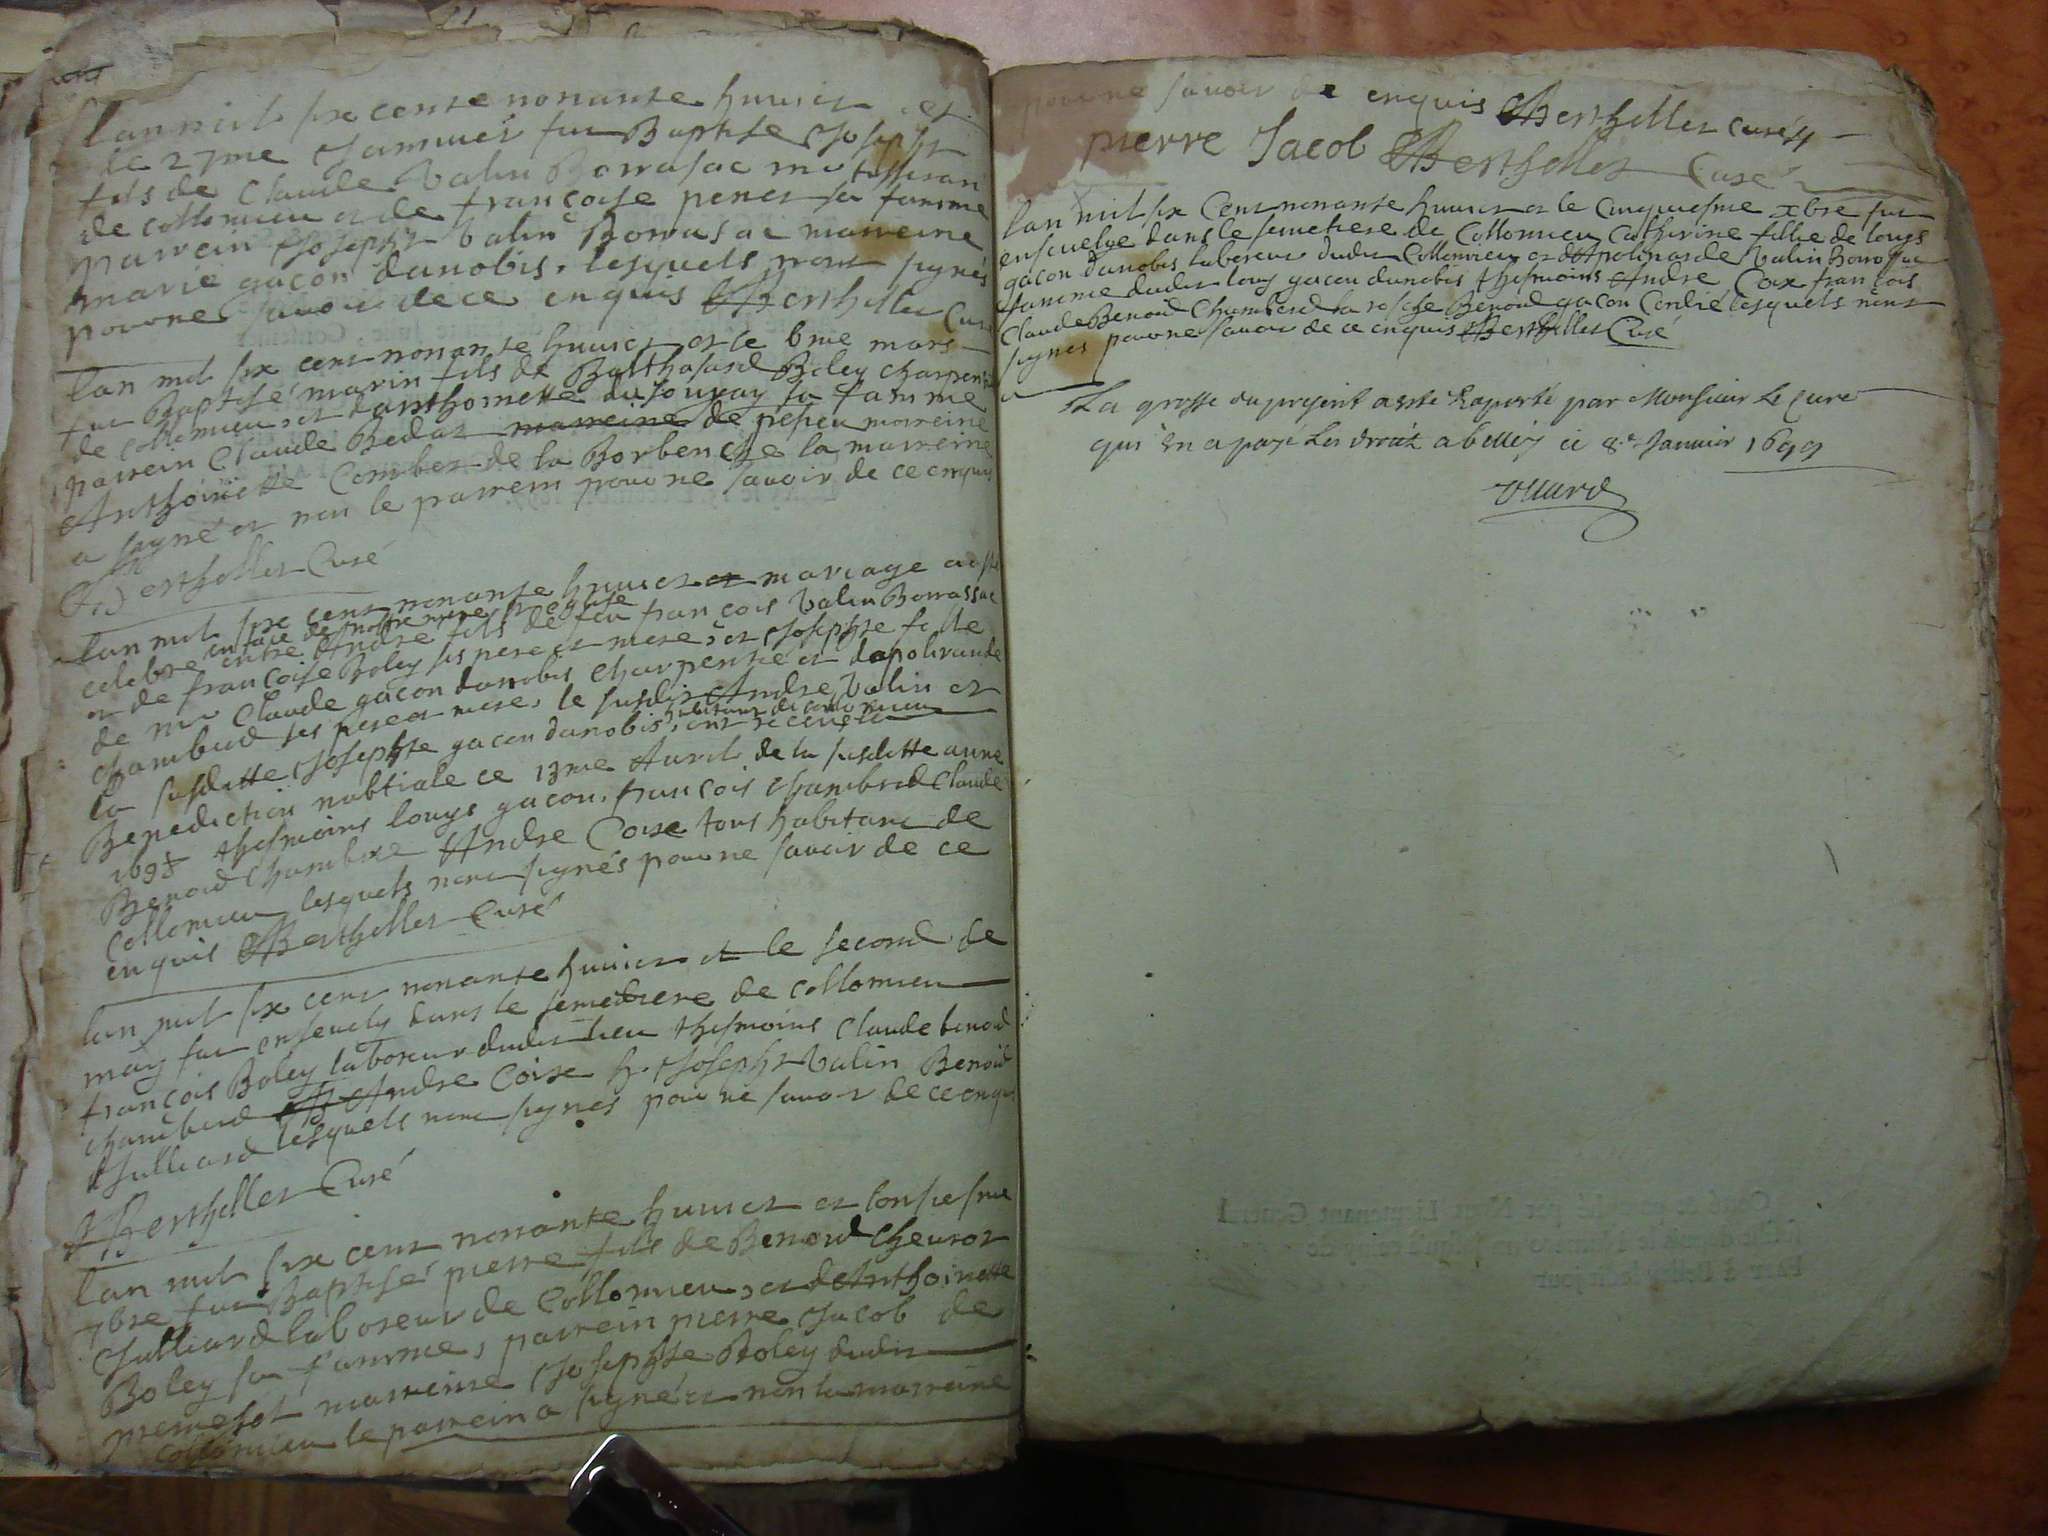 lan mil six cents nonante huuict et
le 27me Januuier fut Baptise Joseph
fils de Claude Valin Bonasac me tisseran
de collomieu et de françoise penet sa famme
parrein Joseph Valin Bonasac marreine
marie gacon danobis, lesquels nont signés
pour ne sauoir de ce enquis Berthellet Curé
lan mil six cent nonante huuict et le 6me mars
fut Baptisé marin fils de Balthasard Boley charpentié
de collomieu et danthoinette du Jouuay sa famme
parrein Claude Bedat marreine de pepieu marreine
Anthoinette Combet de la Borbenche la marreine
a signé et non le parrein pour ne sauoir de ce enquis
Berthellet Curé
lan mil six cent nonante huuict et mariage a esté
celebre en face de nostre mere ste eglise entre Andre fils de feu francois Valin Bonassac
et de francoise Boley ses pere et mere, et Josephte fille
de me Claude gacon danobis charpentié et dapolinarde
chamberd ses pere et mere, le susdit Andre Valin et
la susditte Josephte gacon danobis, habitans de collomieu ont receus la
Benediction nubtiale ce 13me Auril de la susditte anne
1698 thesmoins louys gacon, francois Chamberd Claude
Benoid Chambere Andre Coixe tous habitans de
Collomieu lesquels nont signés pour ne sauoir de ce
enquis Berthellet Curé
lan mil six cent nonante huuict et le second de
may fut enseuely dans le semetiere de collomieu
francois Boley laboreur dudit lieu thesmoins Claude benoid
chamberd Andre Coixe Joseph Valin Benoid
Julliard lesquels nont signes pour ne sauoir de ce enquis
Berthellet Curé
lan mil six cent nonante huuict et lonsiesme
7bre fut Baptisé pierre fils de Benoid Cheurot
Julliard laboreur de Collomieu, et dAnthoinette
Boley sa famme, parrein pierre Jacob de
premesot marreine Josephte Boley dudit
Collomieu le parrein a signé et non la marreine
pour ne sauoir de enquis Berthellet curé
pierre Jacob Berthellet Curé
lan mil six Cent nonante huuict et le Cinquiesme xbre fut
enseuelye dans le semetiere de Collomieu Catherine fillie de louys
gacon danobis laboreur dudit Collomieu et dApolinarde Valin Bonassac
famme dudit louy gacon danobis thesmoins Andre Coix francois
Claude Benoid Chamberd la rosche Benoid gacon Condre lesquels nont
signes pour ne sauoir de ce enquis Berthellet Curé
La grosse du present a esté Raporté par Monsieur Le Curé
qui en a payé Les droit a belley ce 8e Januier 1699